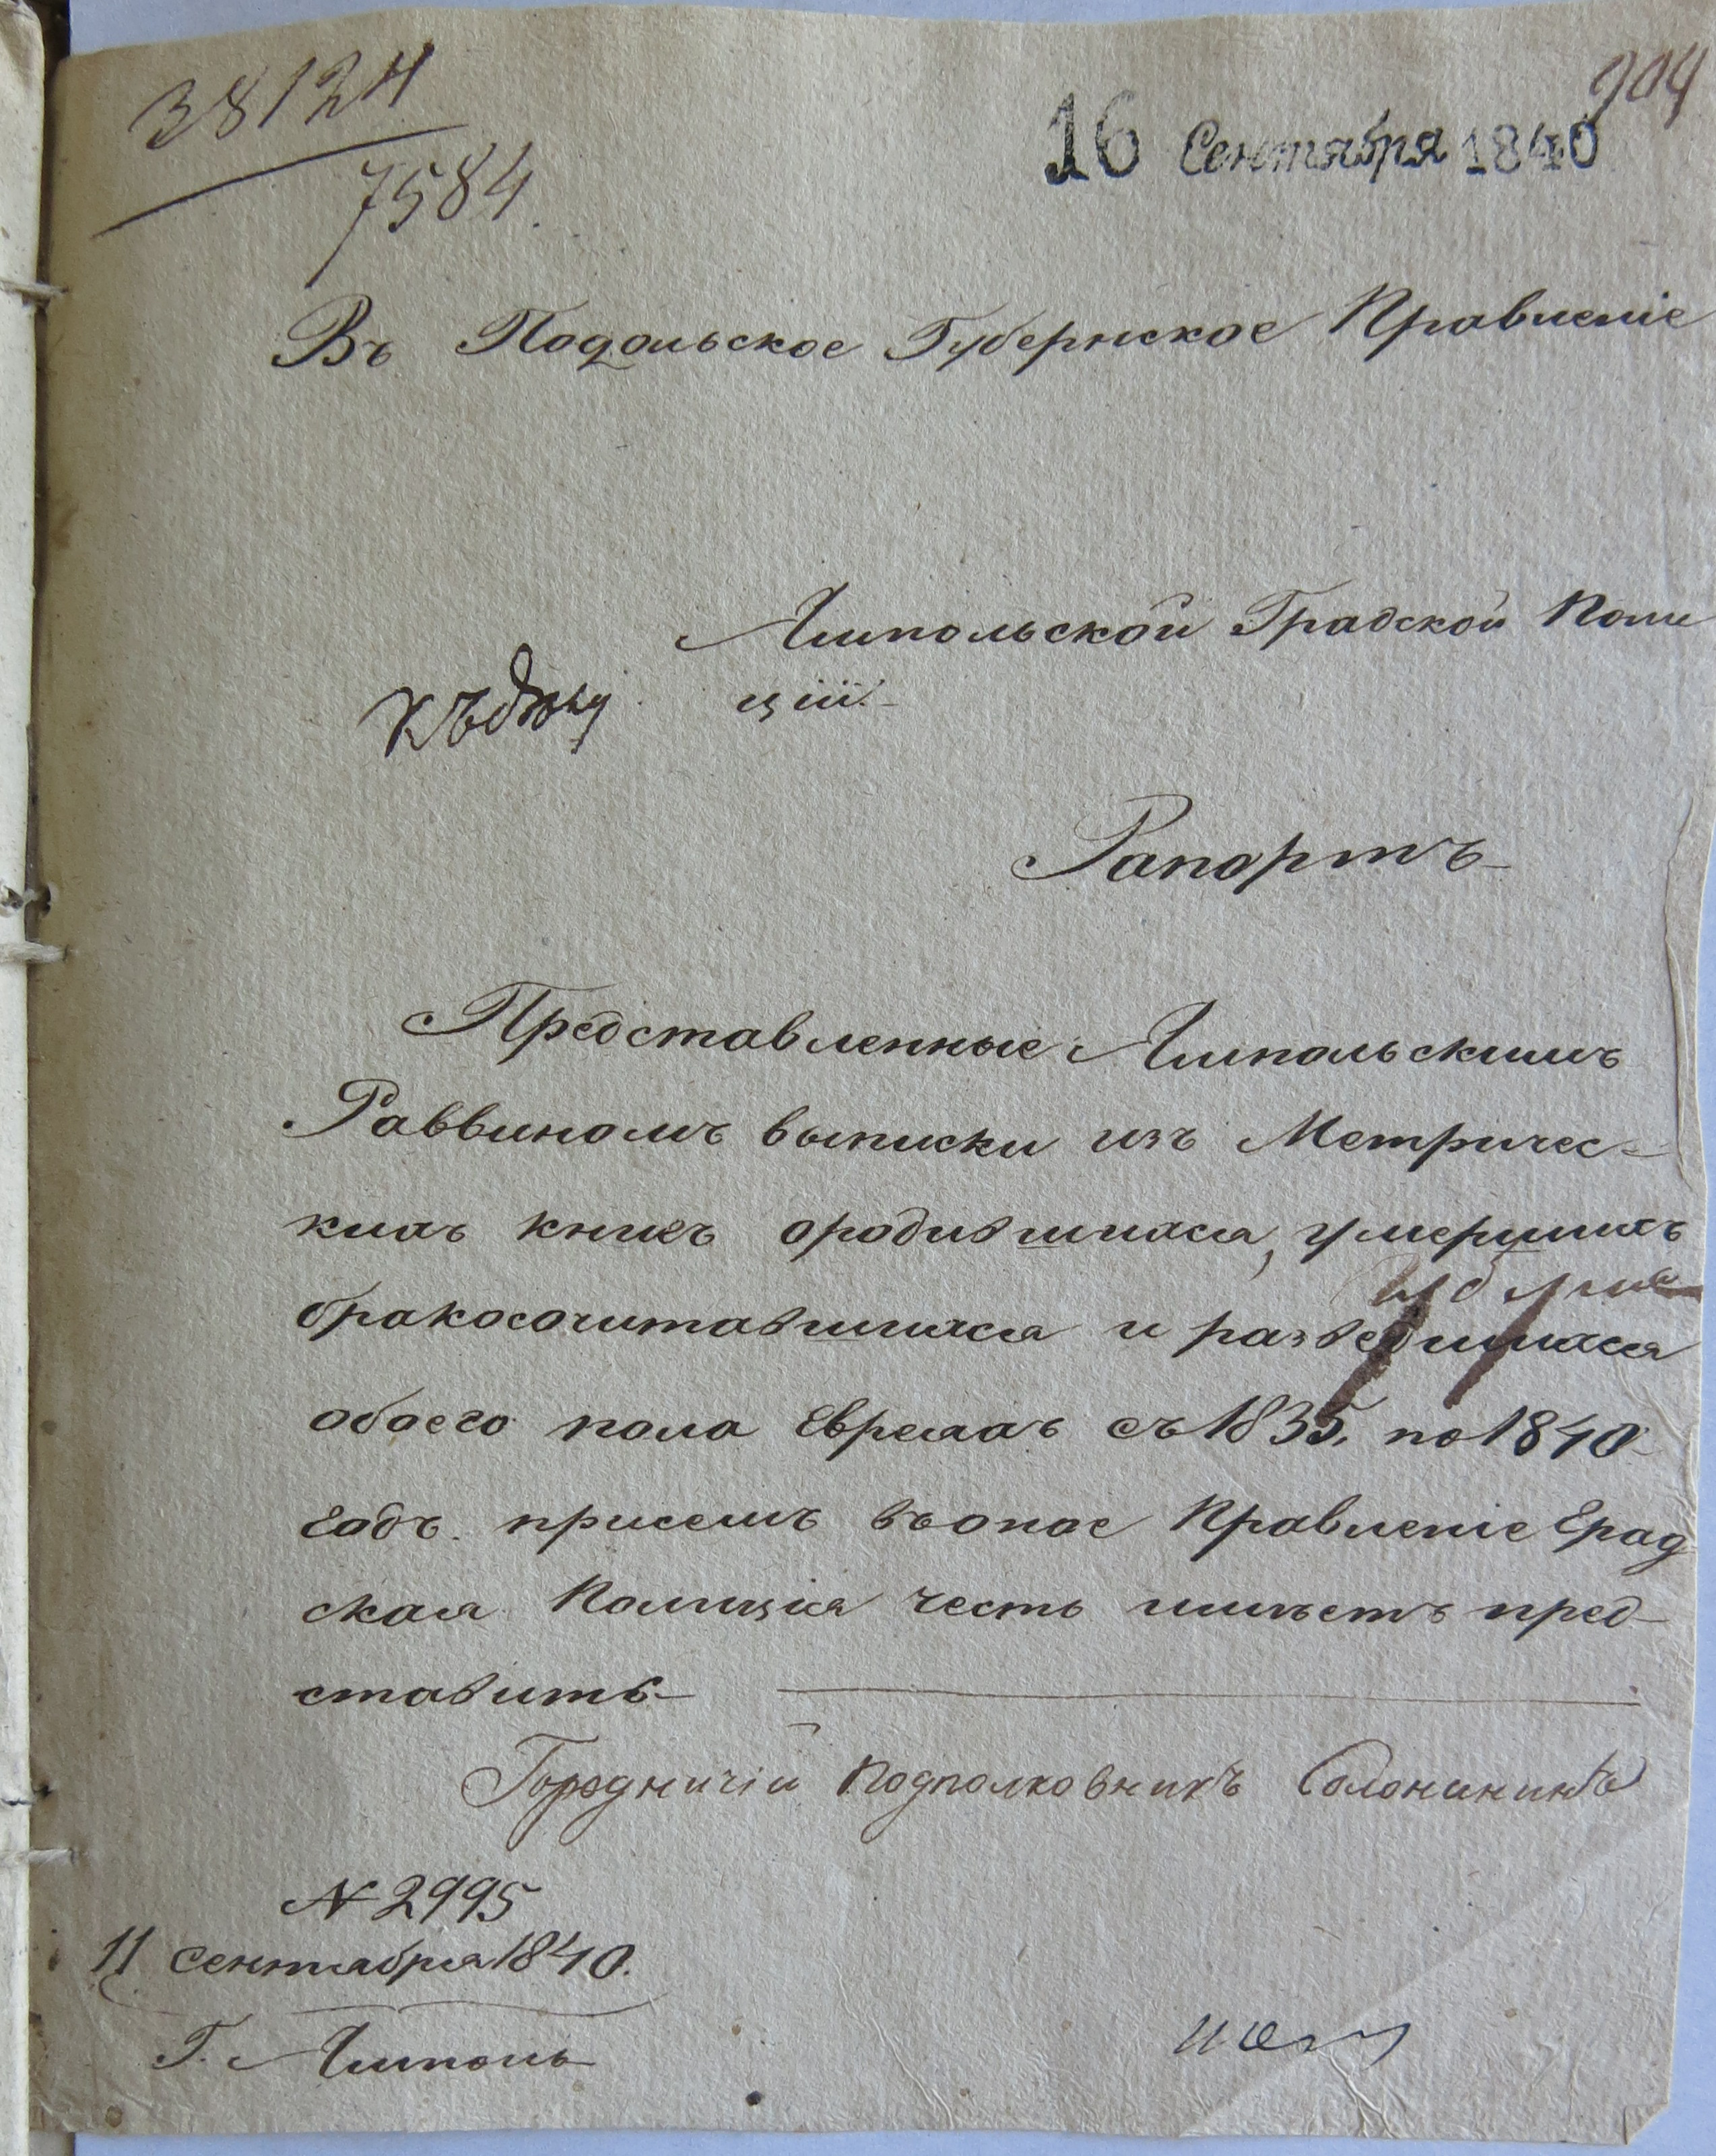 38124
904
16 Сентября 1840
7584.
Въ Подольское Губернское Правленіе
Ямпольской Градской Поли
ціи.
къ дѣлу
Рапортъ
Представленные Ямпольскимъ
Раввиномъ выписки изъ Метричес-
кихъ книгъ о родившихся, умершихъ
бракосочитавшихся и разведшихся
обоего пола Евреяхъ съ 1835. по 1840
годъ. при семъ въ оное Правленіе Град
ская Полиція честь имѣетъ пред-
ставить
Городничій Подполковникъ Солонининъ
N 2995
11 сентября 1840.
Г. Ямполь